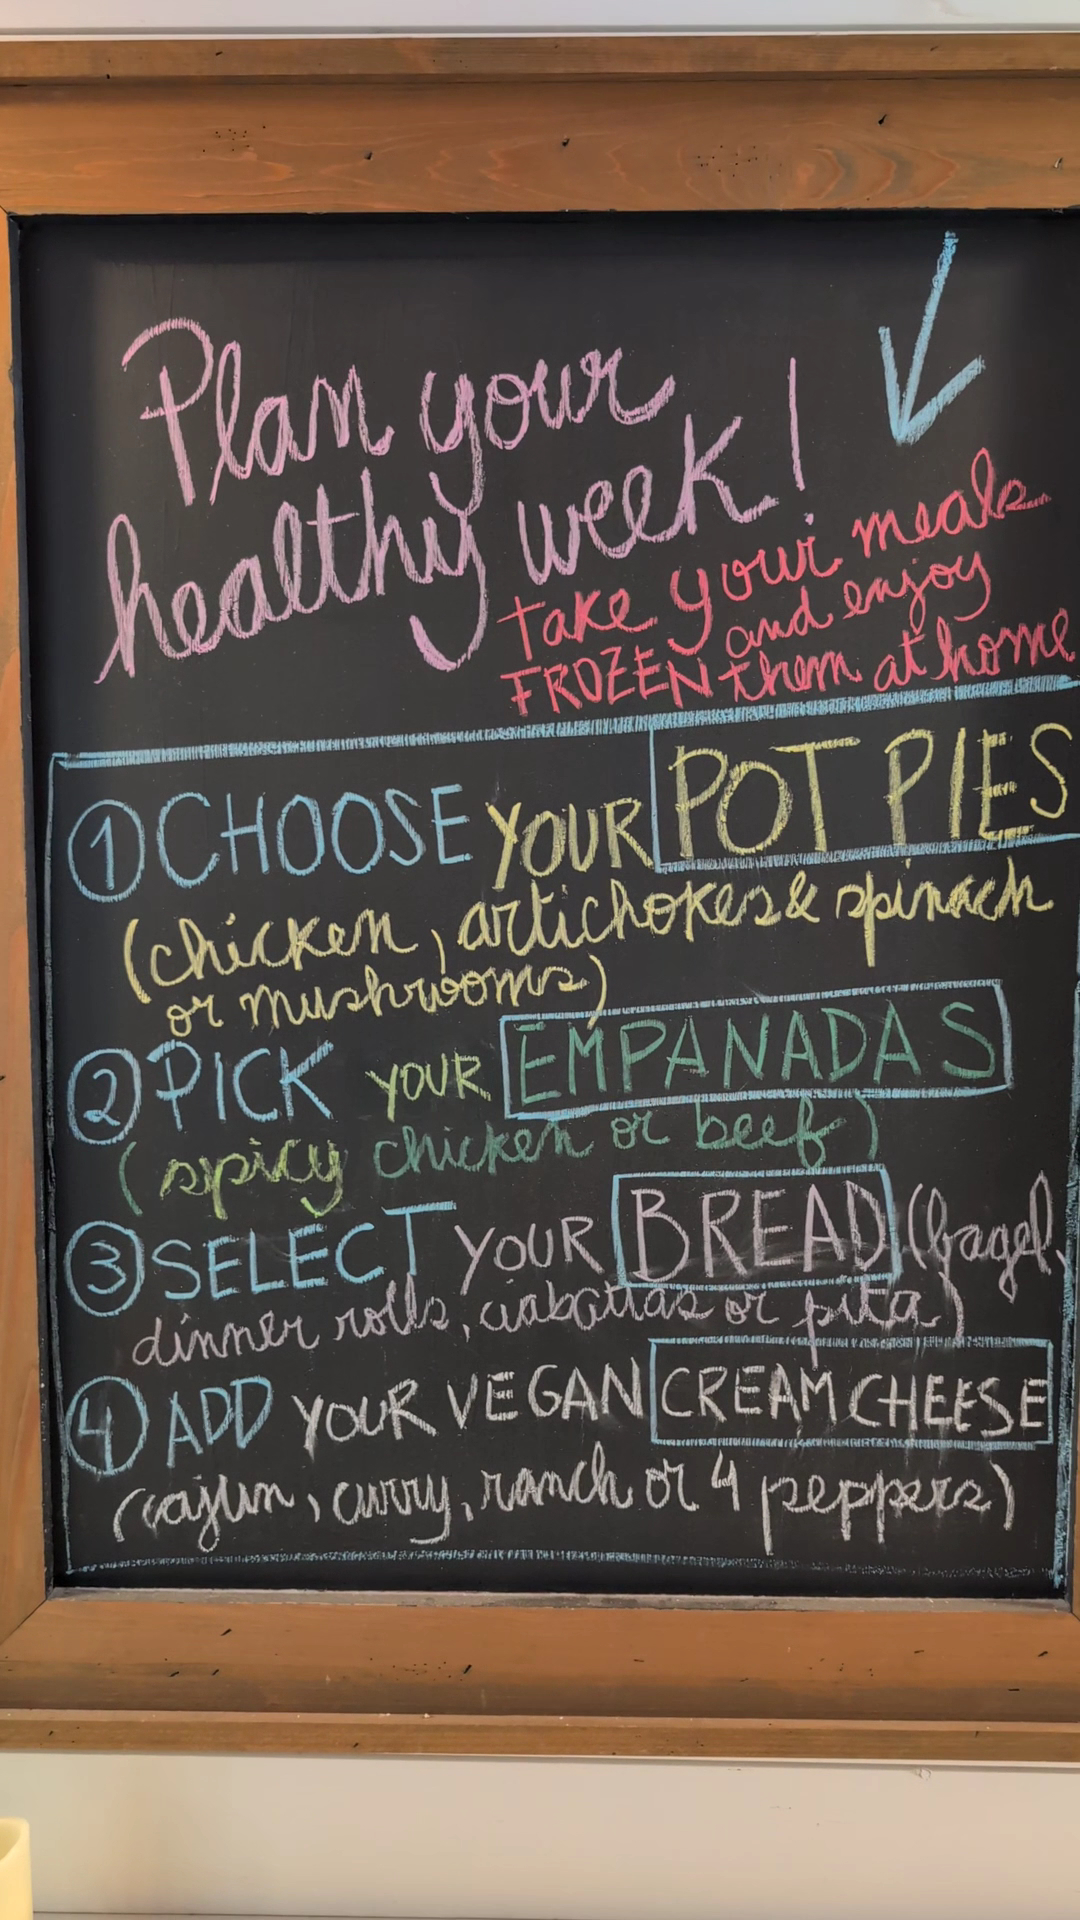 Plan your
healthy week!
Take your meals
FROZEN and enjoy
them at home
① CHOOSE YOUR POT PIES
(chicken, artichokes & spinach
or mushrooms)
② PICK YOUR EMPANADAS
(spicy chicken or beef)
③ SELECT YOUR BREAD (bagel,
dinner rolls, ciabattas or pita)
④ ADD YOUR VEGAN CREAM CHEESE
(cajun, curry, ranch or 4 peppers)